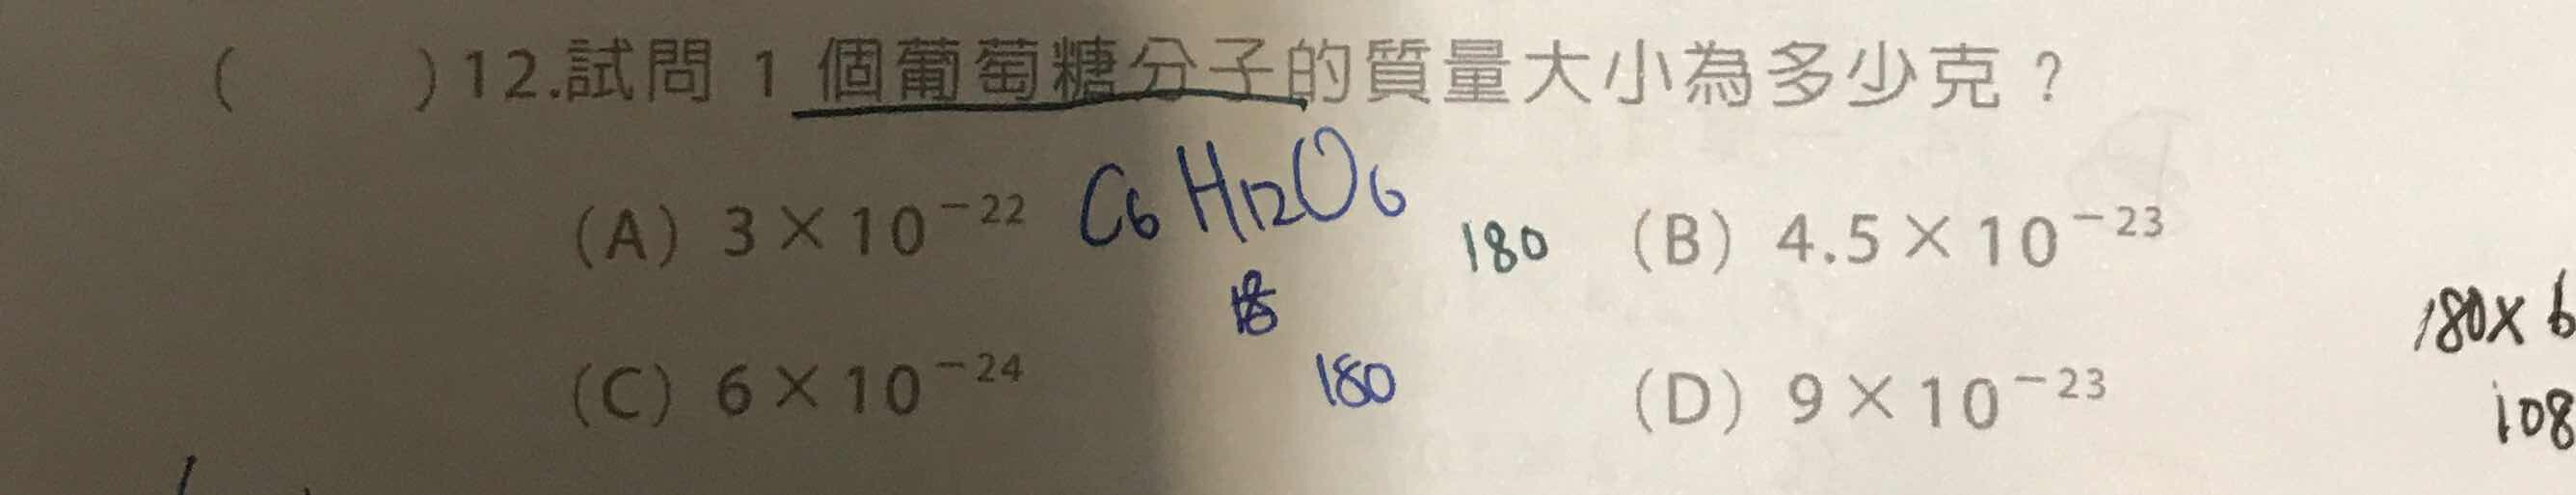 (　　)12.試問 1 個葡萄糖分子的質量大小為多少克？
(A) 3×10⁻²² C₆H₁₂O₆ 180 (B) 4.5×10⁻²³
18
180×6
(C) 6×10⁻²⁴ 180 (D) 9×10⁻²³
108